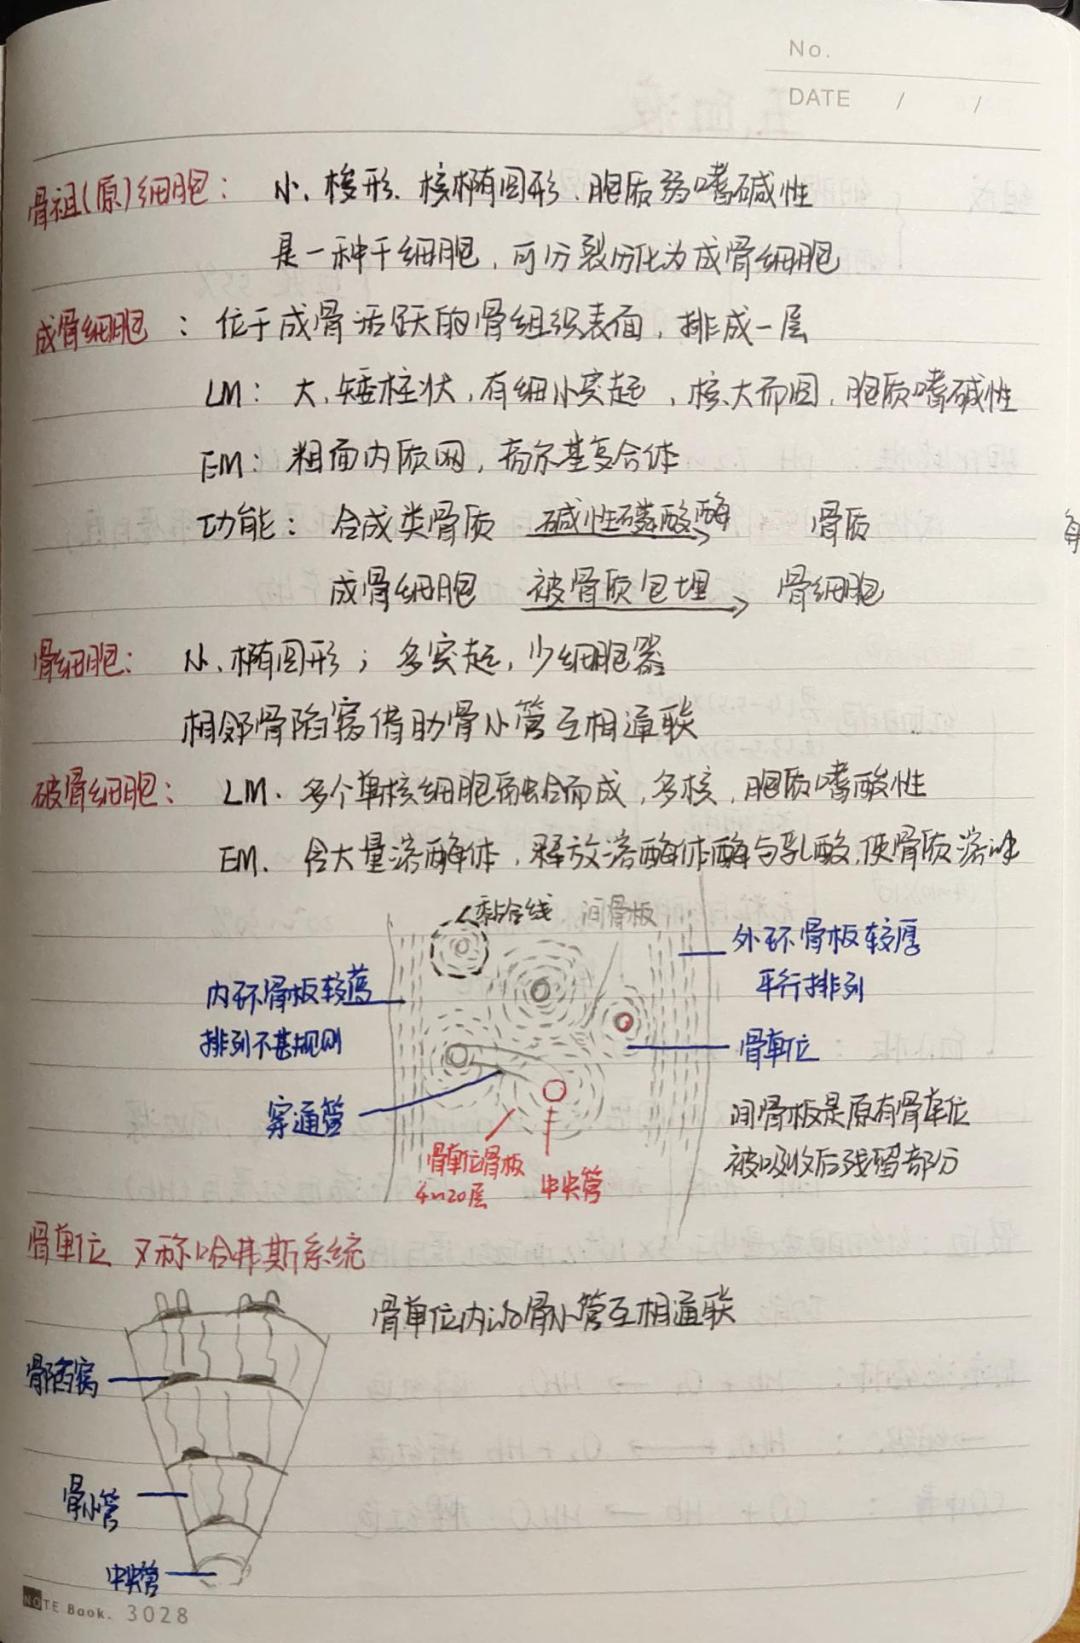 No.
DATE / /
骨祖(原)细胞： 小、梭形、核椭圆形、胞质弱嗜碱性
是一种干细胞，可分裂分化为成骨细胞
成骨细胞：位于成骨活跃的骨组织表面，排成一层
LM：大，矮柱状，有细小突起，核大而圆，胞质嗜碱性
EM：粗面内质网，高尔基复合体
功能：合成类骨质 碱性磷酸酶 骨质
成骨细胞 被骨质包埋 骨细胞
骨细胞： 小、椭圆形；多突起，少细胞器
相邻骨陷窝借助骨小管互相通联
破骨细胞： LM. 多个单核细胞融合而成，多核，胞质嗜酸性
EM. 含大量溶酶体，释放溶酶体酶与乳酸，使骨质溶
黏合线 间骨板
外环骨板较厚
平行排列
内环骨板较薄
排列不甚规则
骨单位
穿通管
间骨板是原有骨单位
被吸收后残留部分
骨单位骨板
4~20层
中央管
骨单位 又称哈弗斯系统
骨单位内的骨小管互相通联
骨陷窝
骨小管
中央管
NOTE Book. 3028